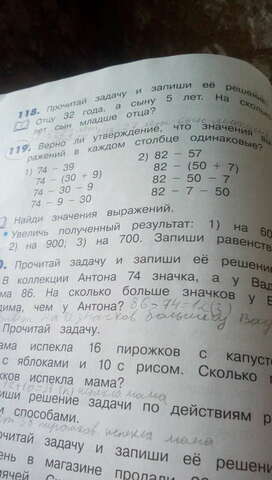 118. Прочитай задачу и запиши её решение
Отцу 32 года, а сыну 5 лет. На сколь
лет сын младше отца?
119. Верно ли утверждение, что значения вы
ражений в каждом столбце одинаковые?
1) 74 – 39
74 – (30 + 9)
74 – 30 – 9
74 – 9 – 30
2) 82 – 57
82 – (50 + 7)
82 – 50 – 7
82 – 7 – 50
Найди значения выражений.
• Увеличь полученный результат: 1) на 60
2) на 900; 3) на 700. Запиши равенств
0. Прочитай задачу и запиши её решени
В коллекции Антона 74 значка, а у Вад
ма 86. На сколько больше значков у В
дима, чем у Антона? 86-74=12(з)
Прочитай задачу.
ама испекла 16 пирожков с капуст
с яблоками и 10 с рисом. Сколько
жков испекла мама?
иши решение задачи по действиям р
и способами.
пирожков испекла мама
очитай задачу и запиши её решени
ень в магазине продали